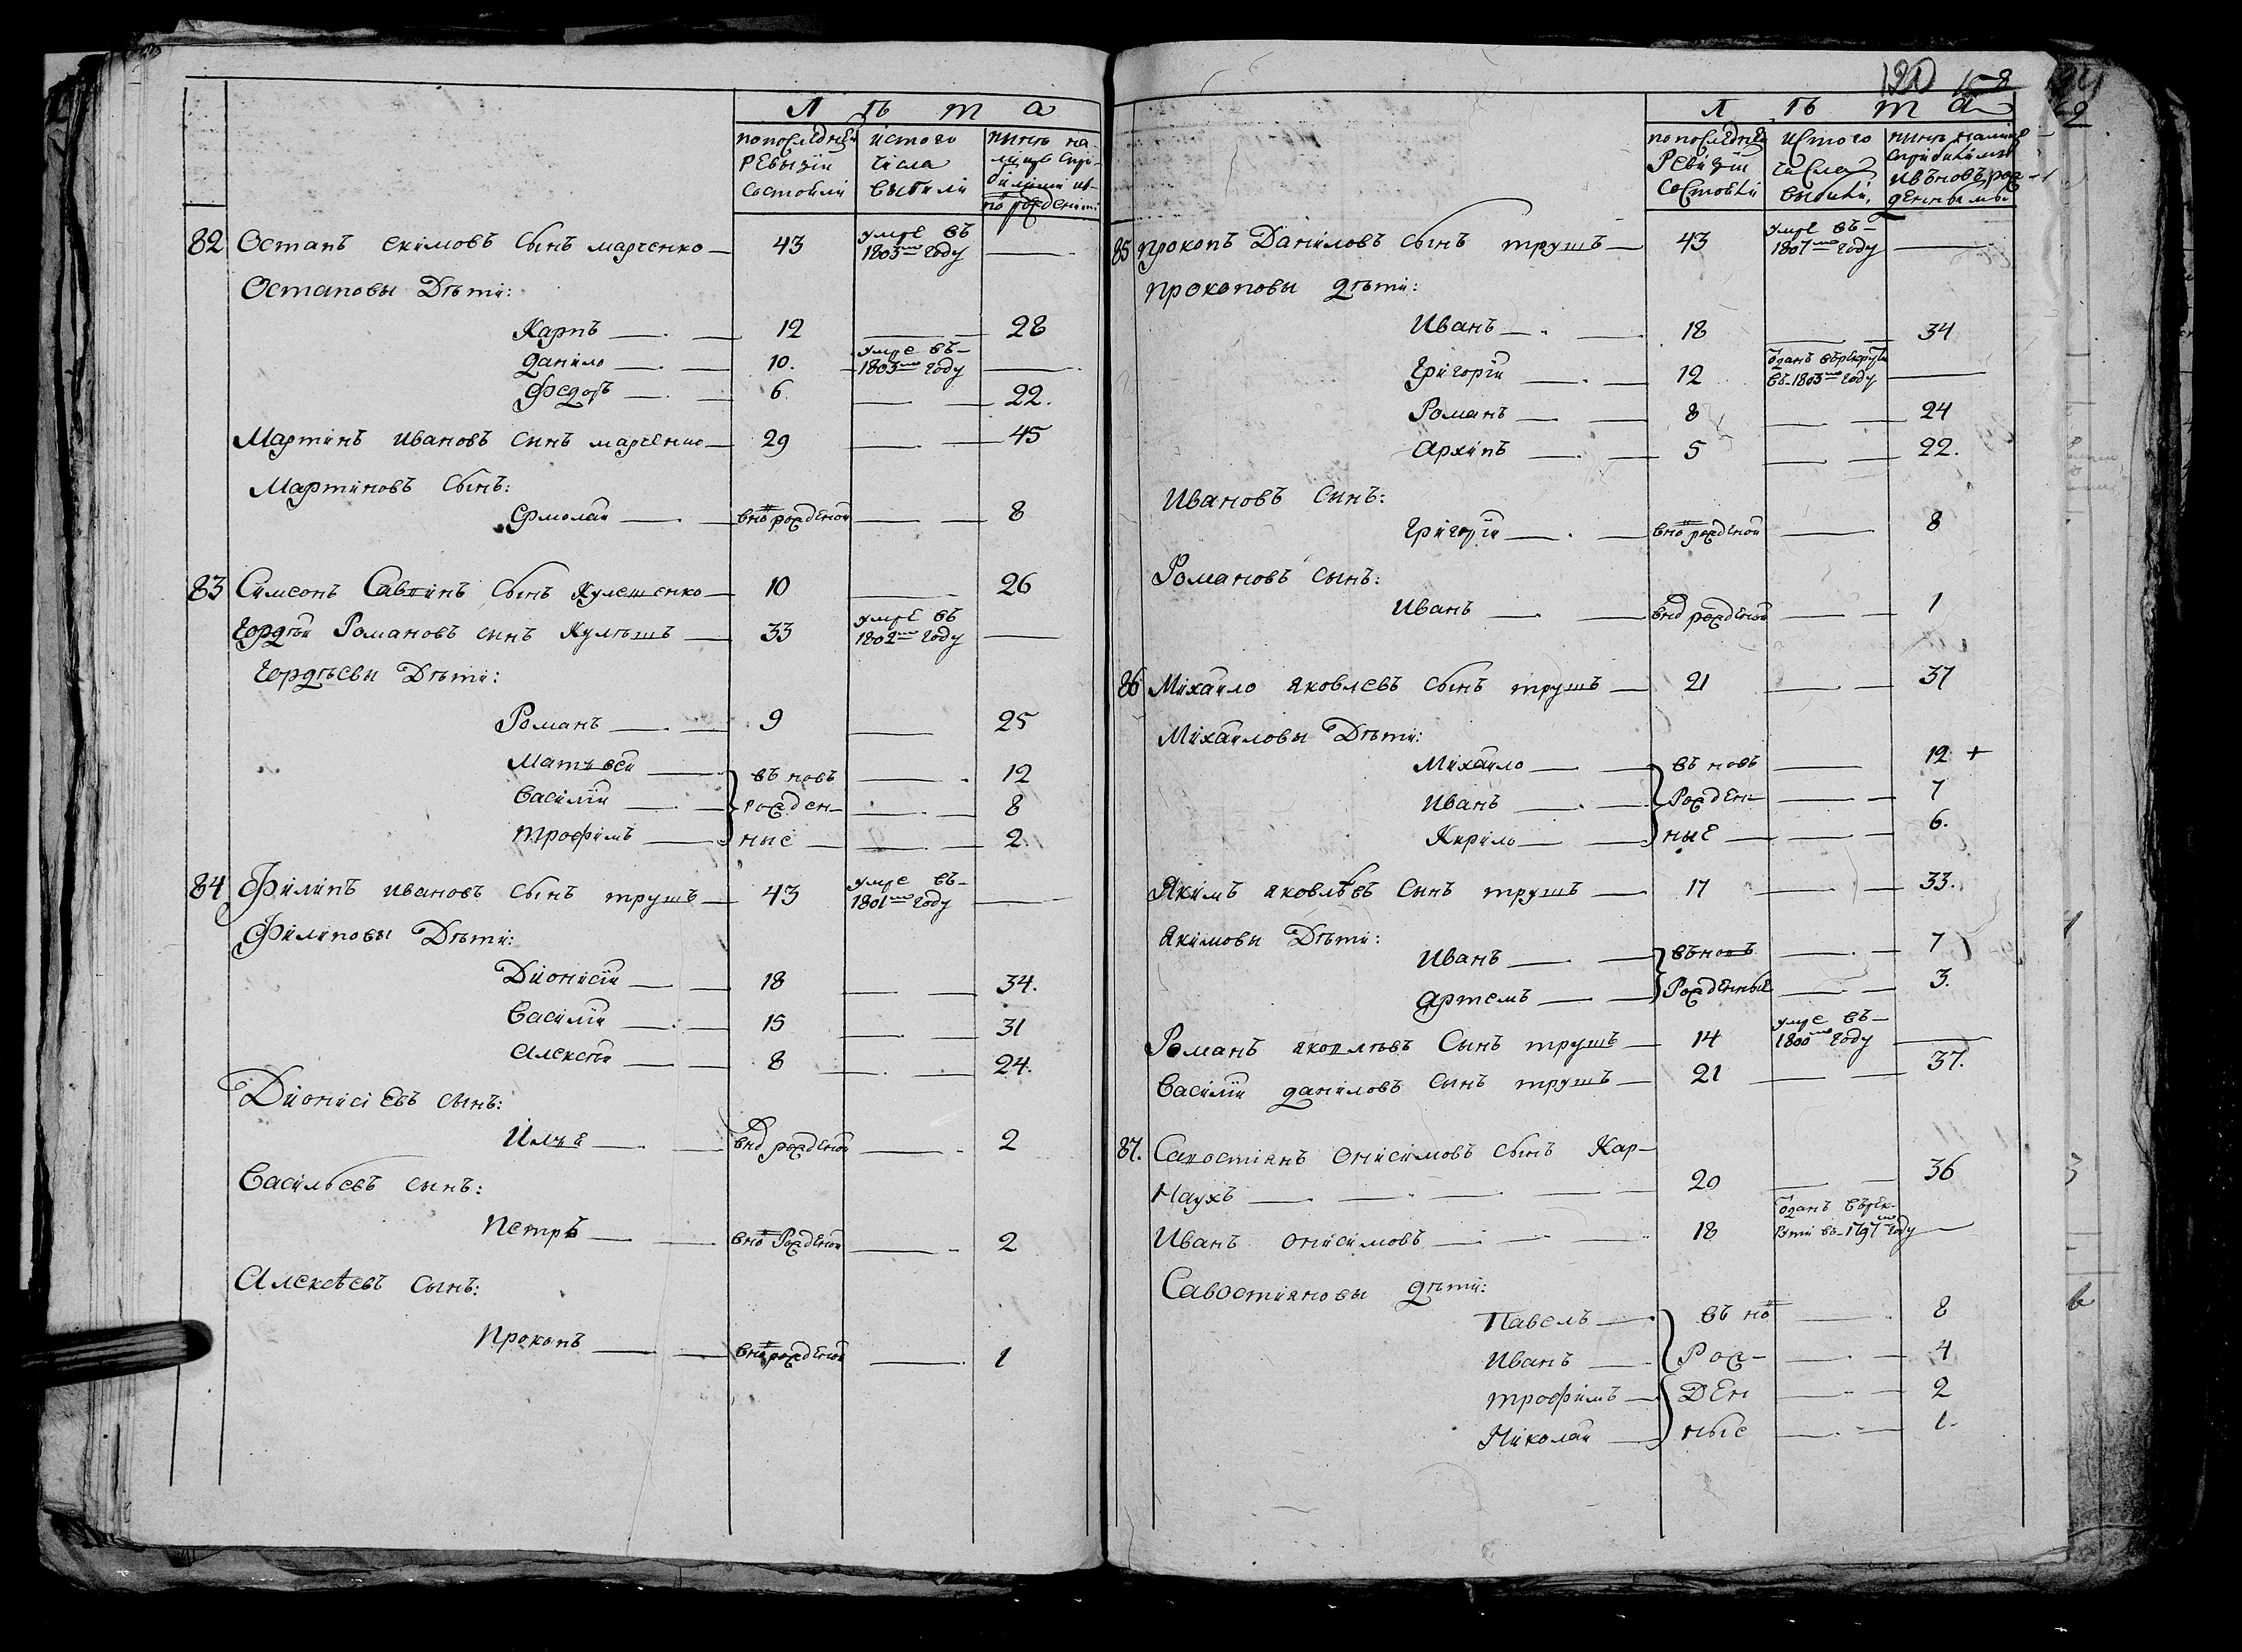 Л ѣ т а
попоследней
ревызіи
состояли
истого
числа
выбыли
нынѣ на
лицо
82 Остапъ екимовъ сынъ марченко — 43 умре въ 1803го году —
Остаповы Дѣти:
Карпъ — 12 — 28
данило — 10. умре въ 1803го году —
федоръ — 6. — 22.
Мартинъ ивановъ синъ марченко — 29 — 45
Мартиновъ сынъ:
Ермолай — вновь рожденой — 8
83 Симеонъ Савинъ сынъ Кулешенко — 10 — 26
Гордѣй Романовъ синъ Кулѣшъ — 33 умре въ 1802го году —
Гордѣевы Дѣти:
Романъ — 9 — 25
Матвей — въ новь — 12
Василій — рожден — 8
трофимъ — ные — 2.
84 Филипъ ивановъ сынъ трушъ — 43 умре въ 1801го году —
Филиповы Дѣти:
Дионисій — 18 — 34.
Василій — 15 — 31
Алексѣй — 8 — 24.
Дионисіевъ сынъ:
Илья — вно рожденой — 2
Васильевъ сынъ:
Петръ — вно рожденой — 2
Алексѣевъ сынъ:
Прокопъ — вно рожденой — 1
120 158
Л ѣ т а
попоследней
Ревизіи
состояли
истого
числа
выбыли,
нынѣ налицо
85 прокопъ Даниловъ сынъ трушъ — 43 умре въ 1807го году —
прокоповы дѣти:
Иванъ — 18 — 34
Григорій — 12 одданъ врекруты въ 1803го году —
Романъ — 8 — 24
Архипъ — 5 — 22.
Ивановъ синъ:
Григорій — вно рожденой — 8
Романовъ сынъ:
Иванъ — вно рожденой — 1
86 Михайло яковлевъ сынъ трушъ — 21 — 37
Михайловы Дѣти:
Михайло — въ новь — 12 +
Иванъ — Рожден — 7
Кирило — ные — 6.
Якимъ яковлѣвъ синъ трушъ — 17 — 33.
Якимовы Дѣти:
Иванъ — въновь — 7
Артемъ — Рожденные — 3.
Романъ яковлѣвъ Сынъ трушъ — 14 умре въ 1800го году —
Василій даниловъ сынъ трушъ — 21 — 37.
87. Савостіянъ онисимовъ сынъ Кар-
наухъ — 20 — 36
Иванъ онисимовъ — 18 одданъ врек- руты въ 1797го году —
Савостіяновы дѣти:
Павелъ — въ но — 8
Иванъ — Рож- — 4
трофимъ — Ден — 2
Николай — ные — 1.